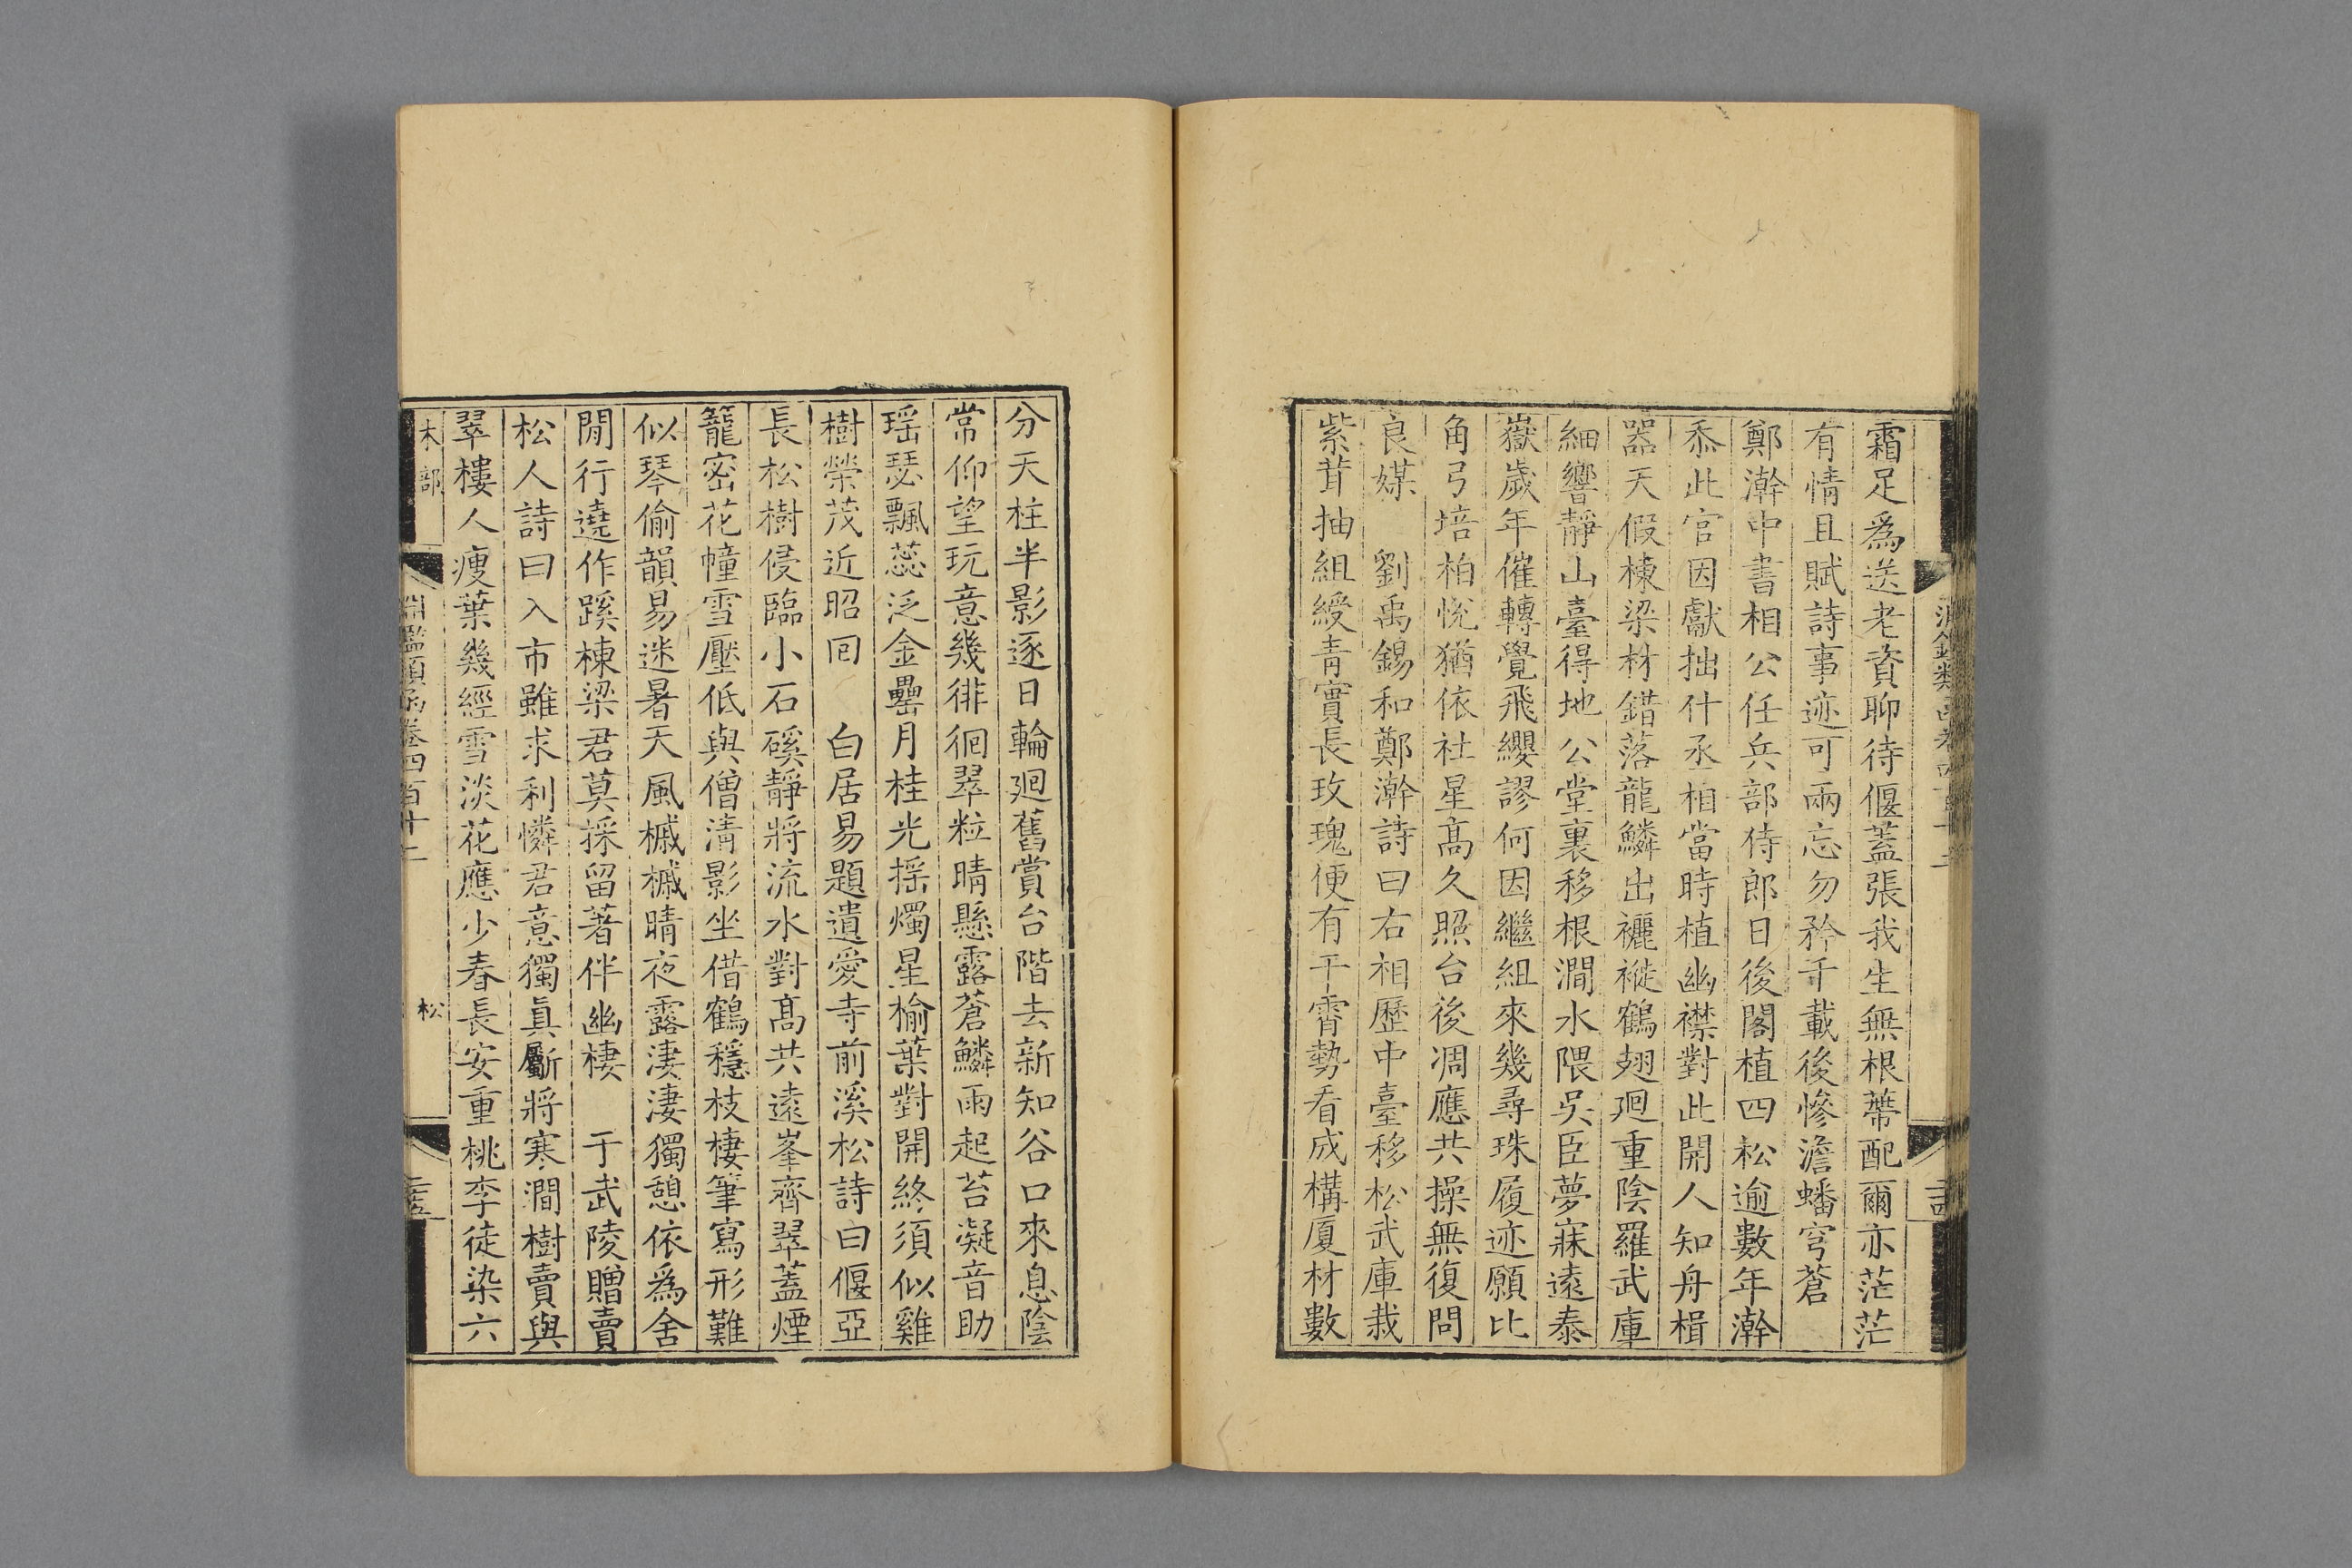 霜足爲送老資聊待偃蓋張我生無根蔕配爾亦茫茫
有情且賦詩事迹可兩忘勿矜千載後慘澹蟠穹蒼
鄭澣中書相公任兵部侍郎日後閣植四松逾數年澣
忝此官因獻拙什丞相當時植幽襟對此開人知舟楫
器天假棟梁材錯落龍鱗出褵褷鶴翅廻重陰羅武庫
細響靜山臺得地公堂裏移根澗水隈吳臣夢寐遠泰
嶽歲年催轉覺飛纓謬何因繼組來幾尋珠履迹願比
角弓培柏悅猶依社星高久照台後凋應共操無復問
良媒　劉禹錫和鄭澣詩曰右相歷中臺移松武庫栽
紫茸抽組綬青實長玫瑰便有干霄勢看成構厦材數
分天柱半影逐日輪廻舊賞台階去新知谷口來息陰
常仰望玩意幾徘徊翠粒晴懸露蒼鱗雨起苔凝音助
瑶瑟飄蕊泛金罍月桂光揺燭星榆葉對開終須似雞
樹榮茂近昭回　白居易題遺愛寺前溪松詩曰偃亞
長松樹侵臨小石磎靜將流水對高共遠峯齊翠蓋煙
籠密花幢雪壓低與僧清影坐借鶴穩枝棲筆寫形難
似琴偷韻易迷暑天風槭槭晴夜露淒淒獨憩依爲舍
閒行遶作蹊棟梁君莫採留著伴幽棲　于武陵贈賣
松人詩曰入市雖求利憐君意獨眞斸將寒澗樹賣與
翠樓人瘦葉幾經雪淡花應少春長安重桃李徒染六
木部
淵鑑類函卷四百十二
松